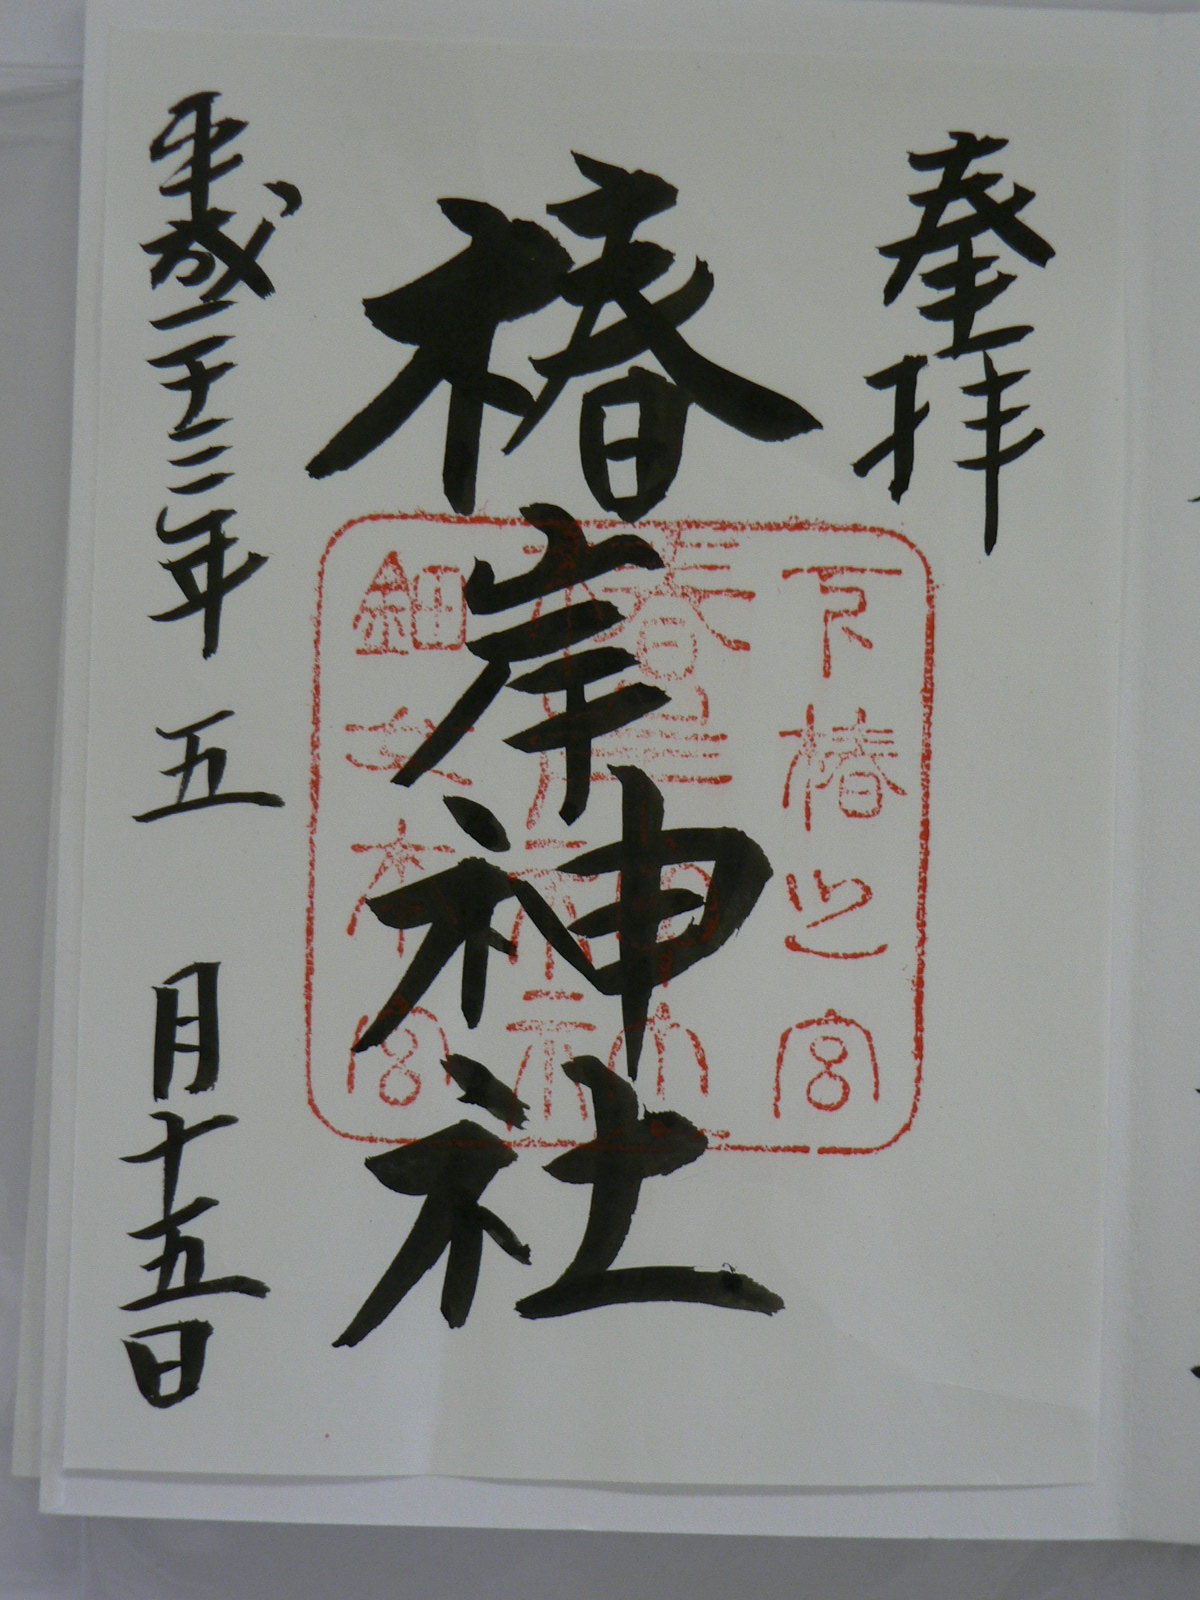 奉拝
椿岸神社
平成二十三年 五 月十五日
下椿之宮
椿岸神社
鈿女本宮